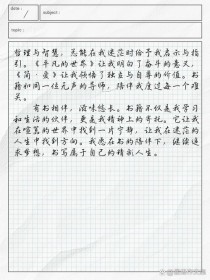 date:
subject:
topic:
哲理与智慧，总能在我迷茫时给予我启示与指
引。《平凡的世界》让我明白了奋斗的意义，
《简·爱》让我领悟了独立与自尊的价值。书
籍如同一位无声的导师，陪伴我度过每一个难
关。
有书相伴，滋味悠长。书籍不仅是我学习
和生活的伙伴，更是我精神上的寄托。它让我
在喧嚣的世界中找到一片宁静，让我在迷茫的
人生中找到方向。我愿在书的陪伴下，继续追
求梦想，书写属于自己的精彩人生。